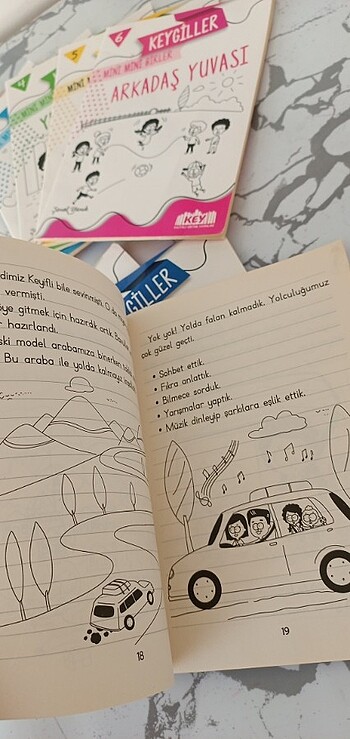 6
KEYGİLLER
5
MİNİ MİNİ BİRLER
4
ARKADAŞ YUVASI
KEY
GİLLER
dimiz Keyifli bile sevinmişti. O da
vermişti.
gitmek için hazırdık artık.
hazırlandı.
ski model arabamıza binerken
Bu araba ile yolda kalmaya
18
Yok yok! Yolda falan kalmadık. Yolculuğumuz
çok güzel geçti.
• Sohbet ettik.
• Fıkra anlattık.
• Bilmece sorduk.
• Yarışmalar yaptık.
• Müzik dinleyip şarkılara eşlik ettik.
19